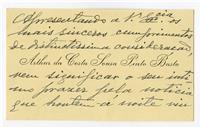 Apresentando a V. Ex.cia os
mais sinceros cumprimentos
de distinctissima consideração,
Arthur da Costa Sousa Pinto Basto
vem significar o seu
prazer pela noticia
que hontem á noite